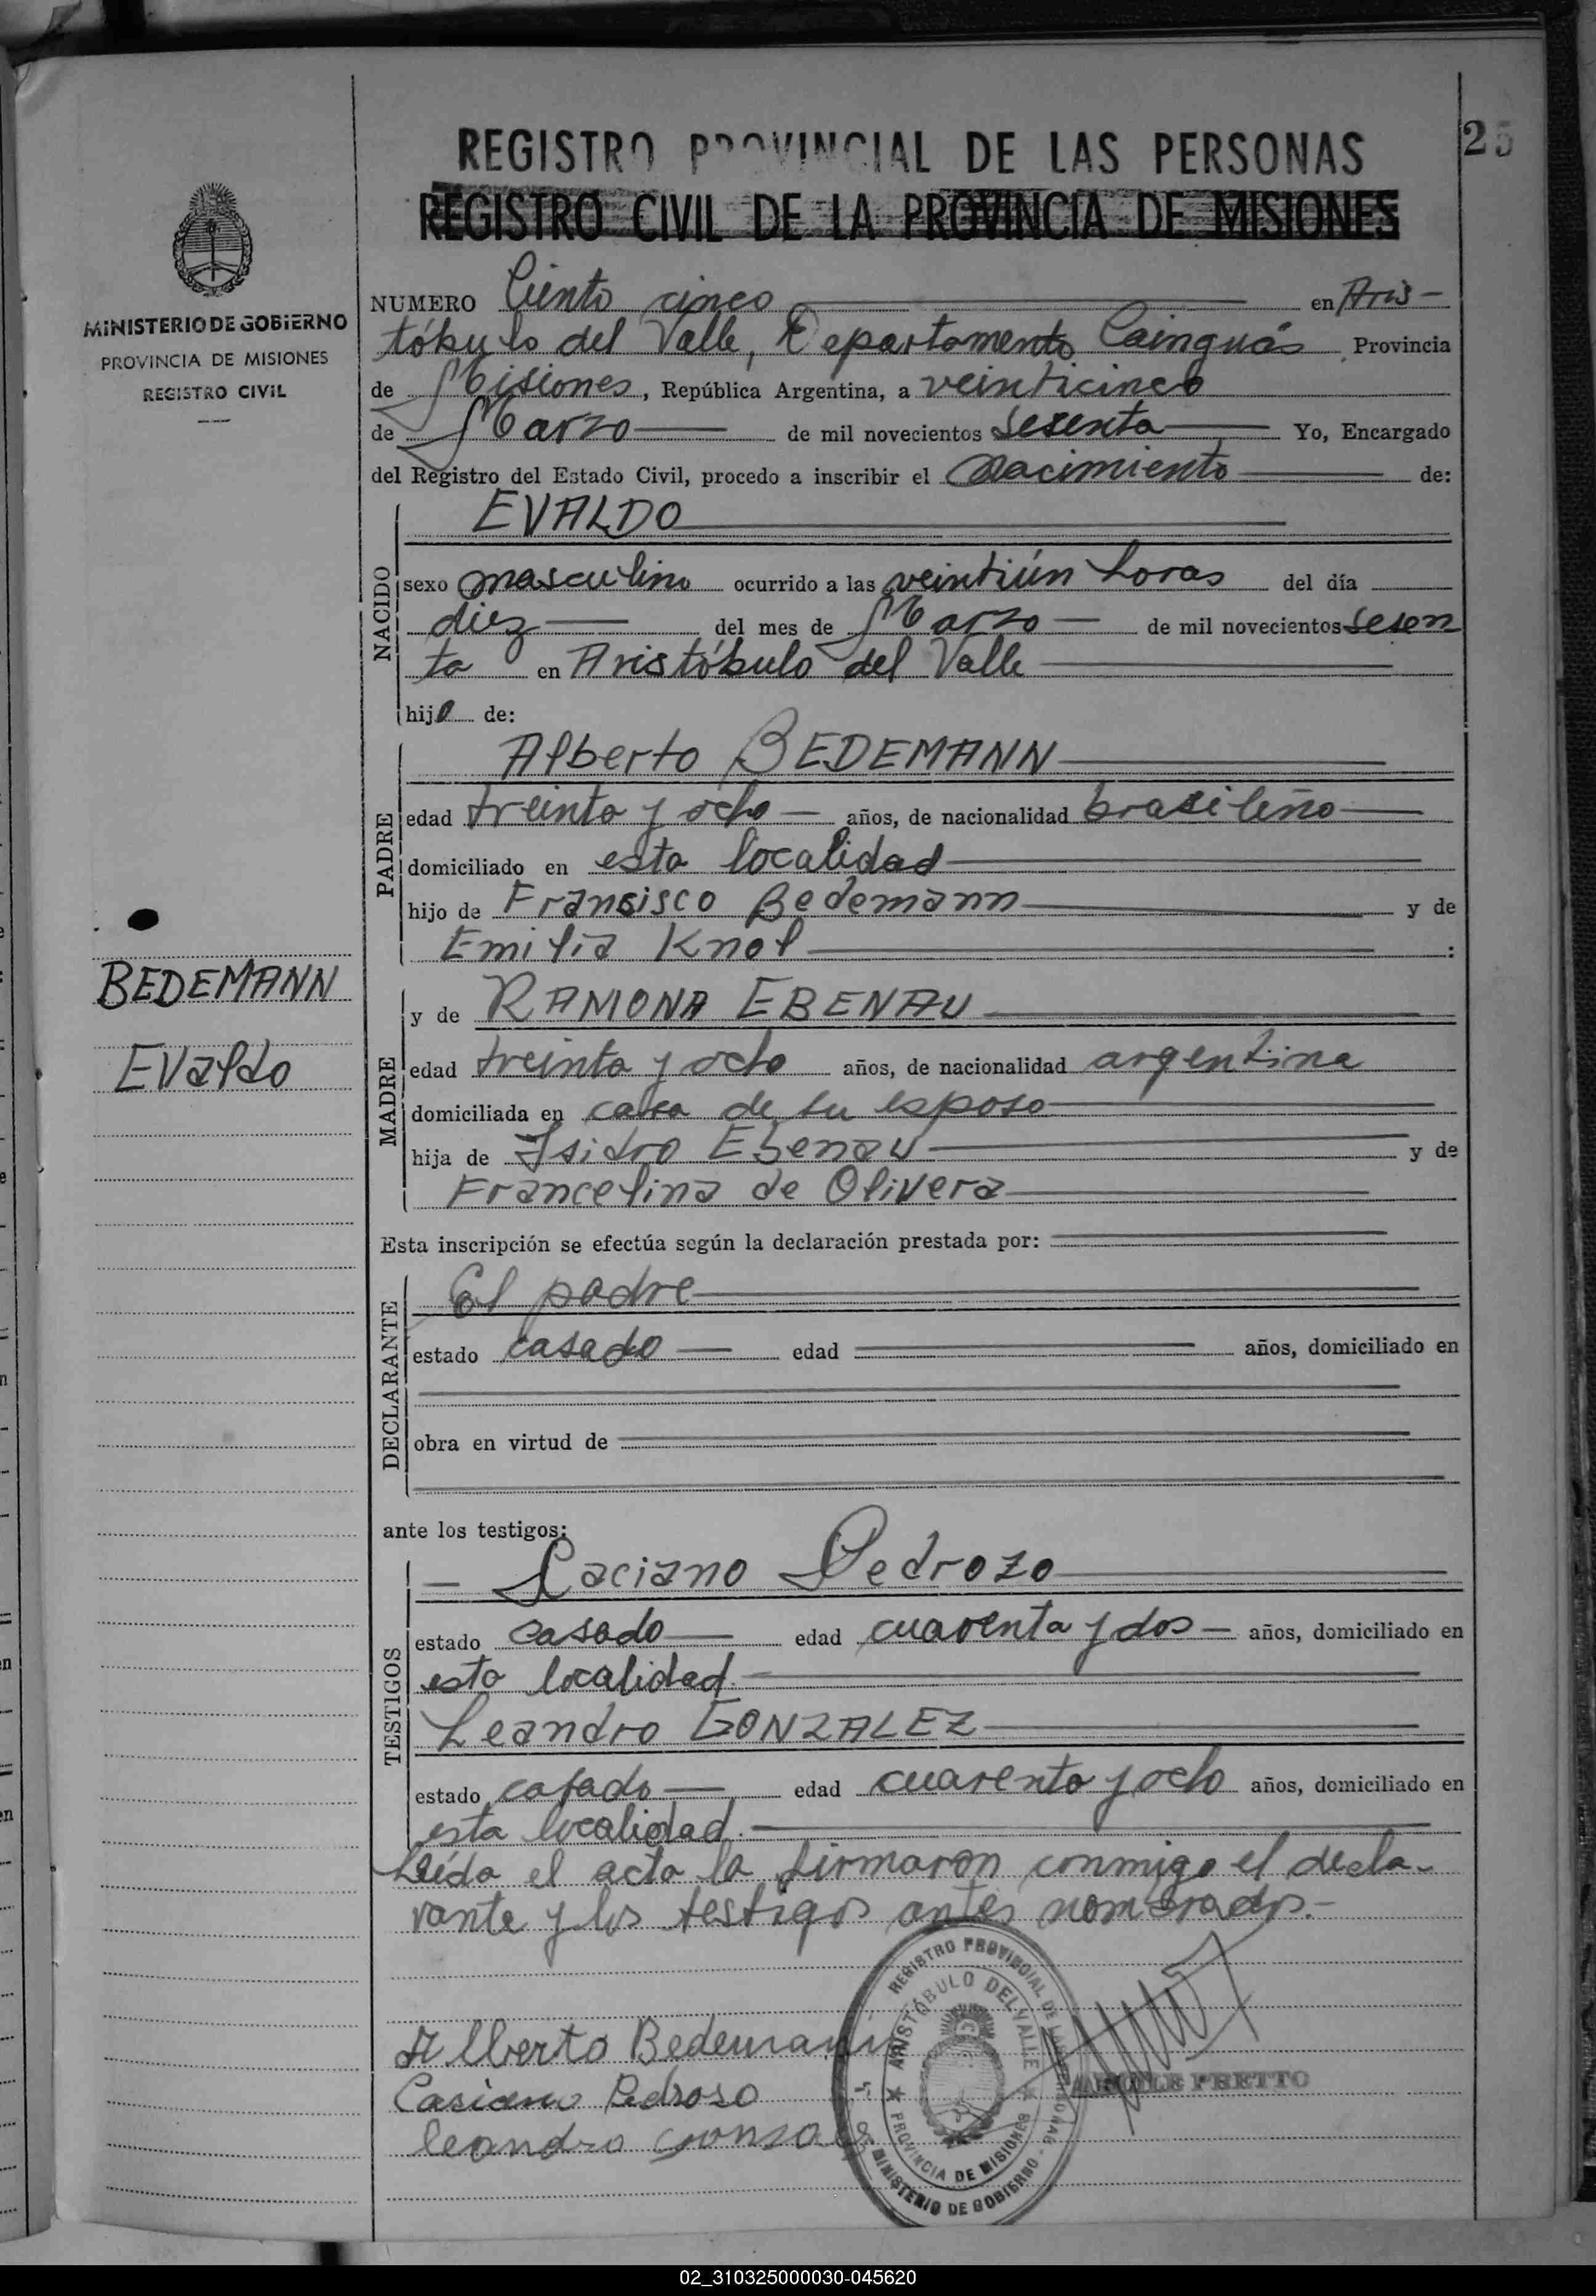 REGISTRO PROVINCIAL DE LAS PERSONAS
REGISTRO CIVIL DE LA PROVINCIA DE MISIONES
25
MINISTERIO DE GOBIERNO
PROVINCIA DE MISIONES
REGISTRO CIVIL
NUMERO Ciento cinco en Aris-
tóbulo del Valle, Departamento Cainguás Provincia
de Misiones, República Argentina, a veinticinco
de Marzo de mil novecientos sesenta Yo, Encargado
del Registro del Estado Civil, procedo a inscribir el nacimiento de:
NACIDO
EVALDO
sexo masculino ocurrido a las veintiún horas del día
diez del mes de Marzo de mil novecientos sesen
ta en Aristóbulo del Valle
hijo de:
PADRE
Alberto BEDEMANN
edad treinta y ocho años, de nacionalidad brasileño
domiciliado en esta localidad
hijo de Fransisco Bedemann y de
Emilia Knol :
BEDEMANN
Evaldo
MADRE
y de RAMONA EBENAU
edad treinta y ocho años, de nacionalidad argentina
domiciliada en casa de su esposo
hija de Isidro Ebenau y de
Francelina de Olivera
Esta inscripción se efectúa según la declaración prestada por:
DECLARANTE
El padre
estado casado edad años, domiciliado en
obra en virtud de
ante los testigos:
TESTIGOS
Caciano Pedrozo
estado casado edad cuarenta y dos años, domiciliado en
esta localidad.
Leandro GONZALEZ
estado casado edad cuarenta y ocho años, domiciliado en
esta localidad.
Leída el acta la firmaron conmigo el decla-
rante y los testigos antes nombrados.-
Alberto Bedemann
Casiano Pedroso
leandro gonsales
REGISTRO PROVINCIAL DE LAS PERSONAS
ARISTÓBULO DEL VALLE
PROVINCIA DE MISIONES
MINISTERIO DE GOBIERNO
PRETTO
02_310325000030-045620